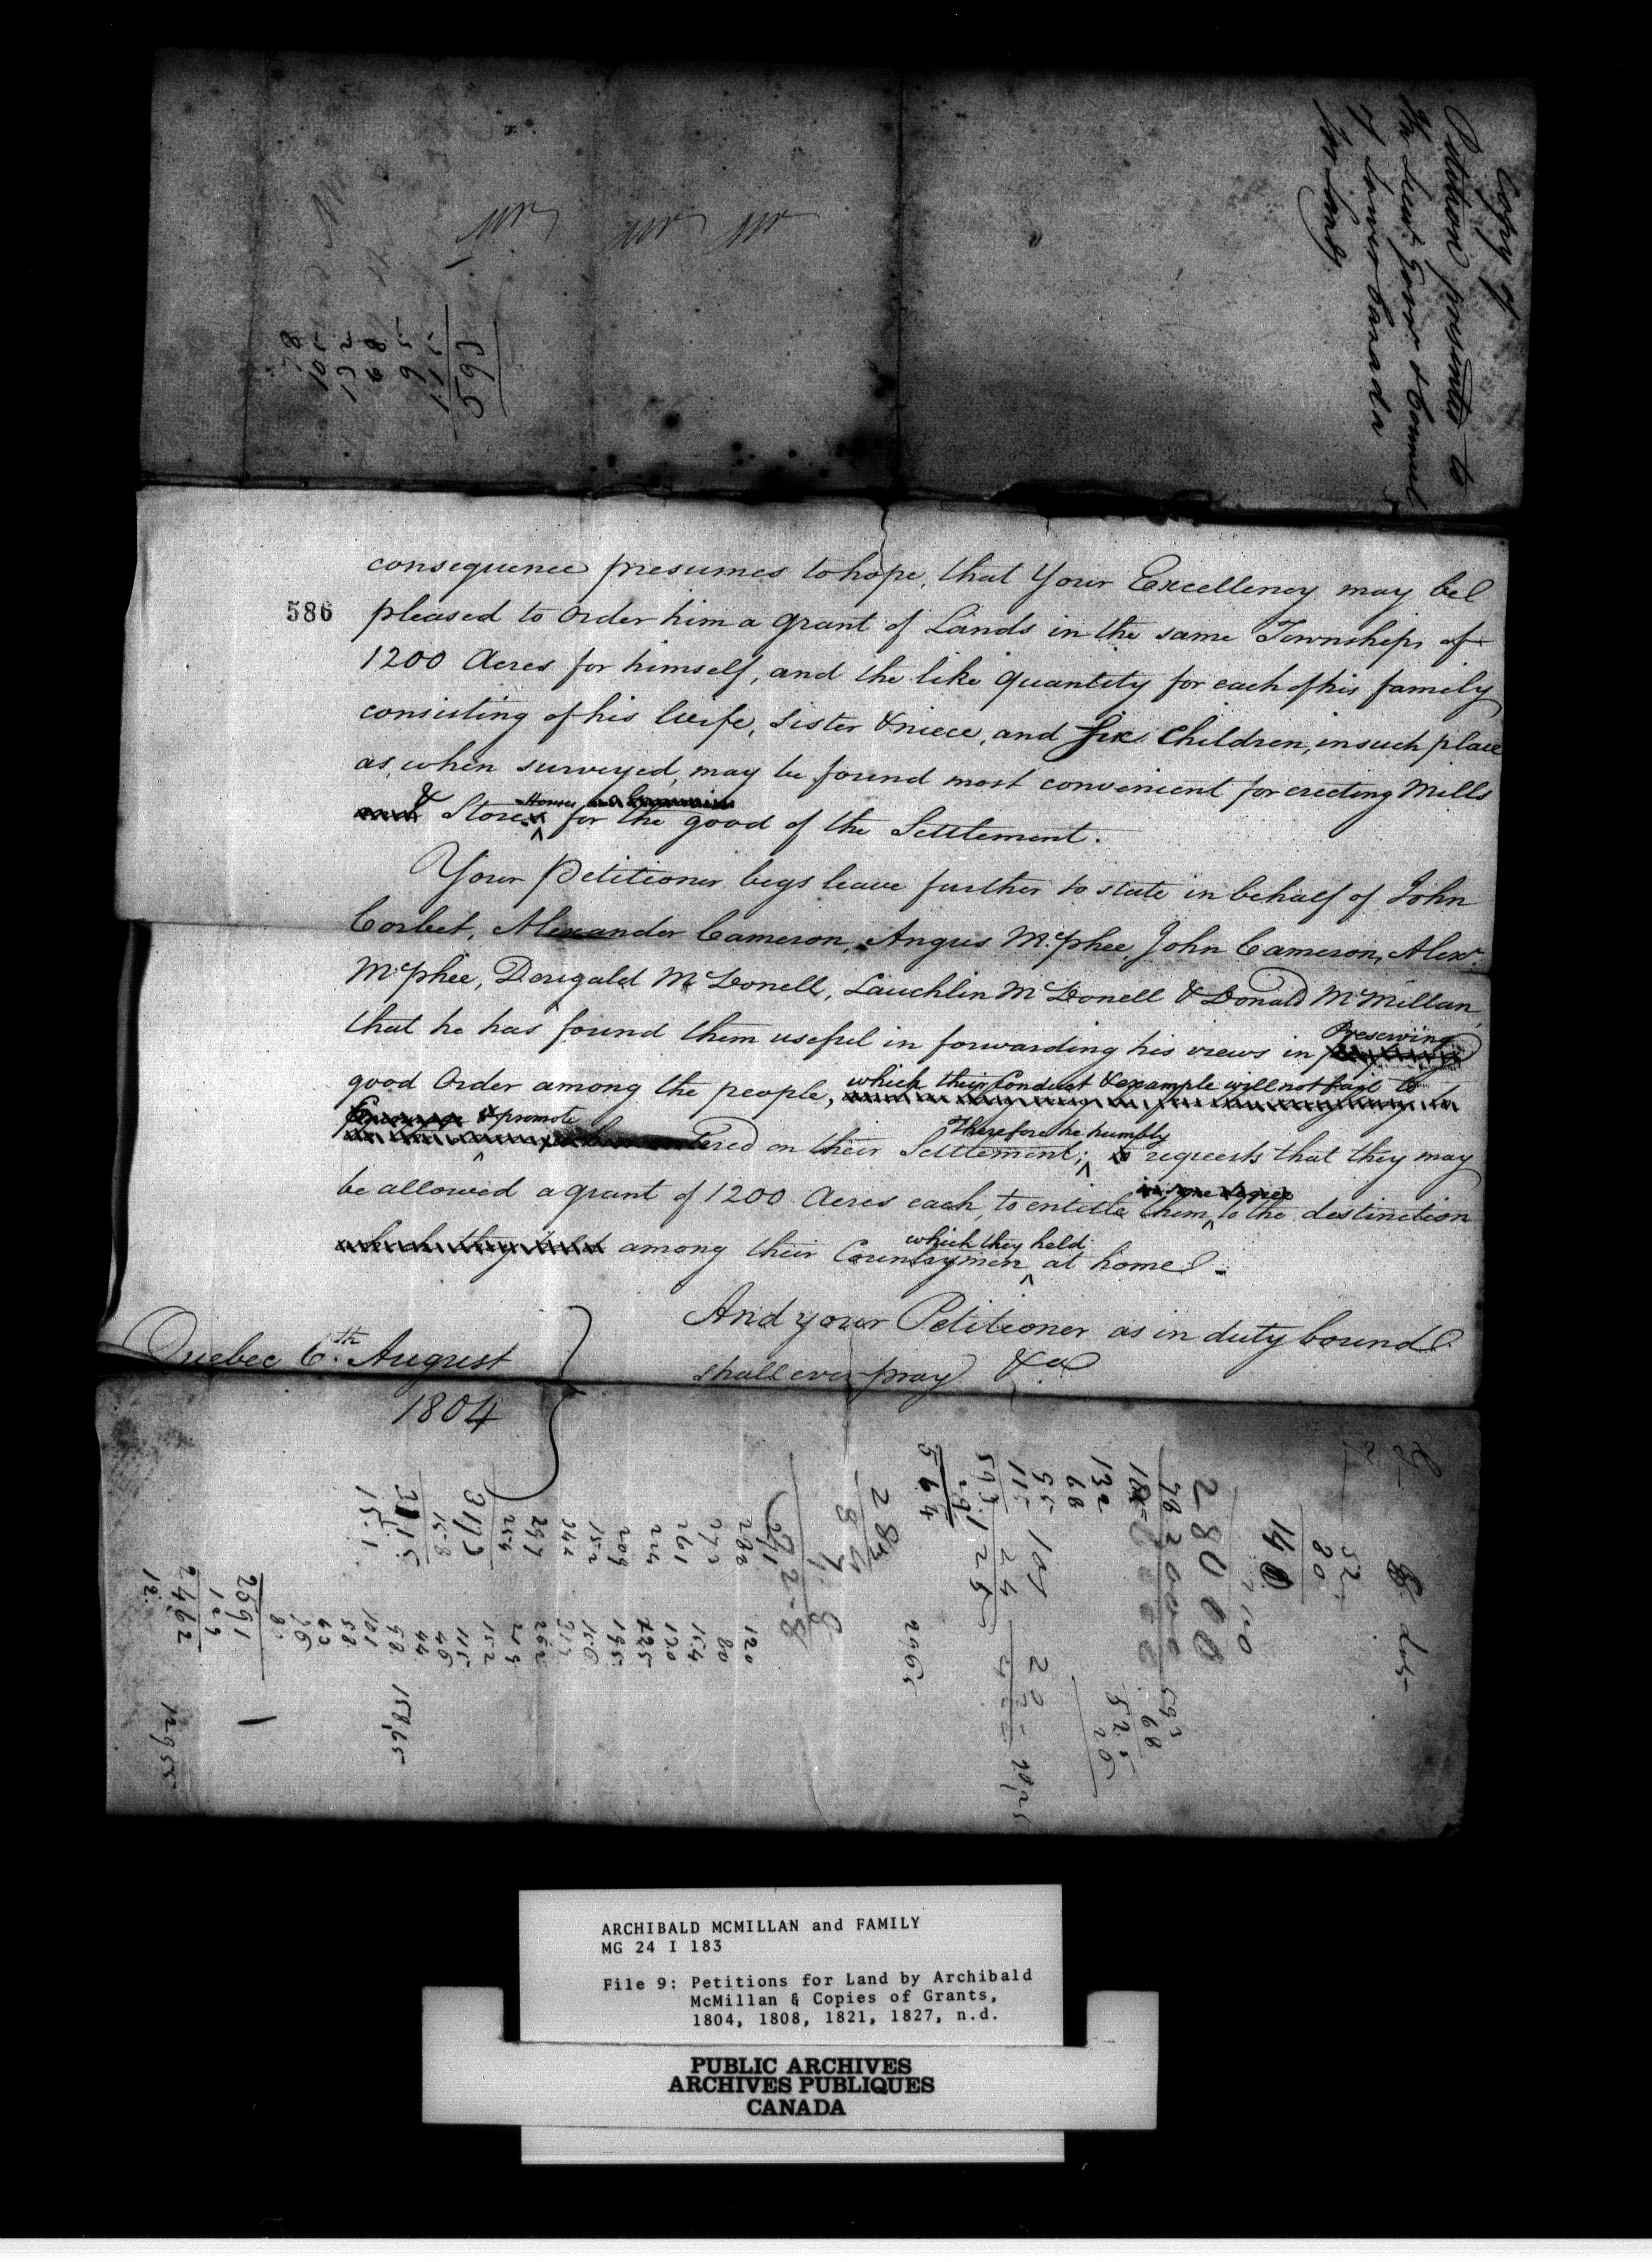 Copy of
Petition presented to
His Lieut. Govr. & Council
of Lower Canada
for Lands
511
569
586
consequence presumes to hope, that Your Excellency may be
pleased to Order him a grant of Lands in the same Townships of
1200 Acres for himself, and the like quantity for each of his family
consisting of his Wife, Sister & niece, and Six Children, in such place
as, when surveyed, may be found most convenient for erecting Mills
& Store Houses for the good of the Settlement.
Your Petitioner begs leave further to state in behalf of John
Corbet, Alexander Cameron, Angus McPhee, John Cameron, Alexr.
McPhee, Dougald McDonell, Lauchlin McDonell & Donald McMillan,
that he has found them useful in forwarding his views in Preserving
good Order among the people, which their Conduct & example will not fail to
Encourage & promote
on their Settlement; Therefore he humbly requests that they may
be allowed a grant of 1200 Acres each, to entitle them in some degree to the distinction
which they held among their Countrymen which they held at home.
And your Petitioner as in duty bound
shall ever pray &ca
Quebec 6th. August
1804
52
80
140
28000
132
68
55
115
593
29
564
593
68
525
20
2965
284
288
272
261
224
209
152
342
297
254
158
151
120
80
154
120
225
195
156
213
262
219
152
115
46
44
58
101
58
2591
129
2462
12
15865
ARCHIBALD MCMILLAN and FAMILY
MG 24 I 183
File 9: Petitions for Land by Archibald
McMillan & Copies of Grants,
1804, 1808, 1821, 1827, n.d.
PUBLIC ARCHIVES
ARCHIVES PUBLIQUES
CANADA